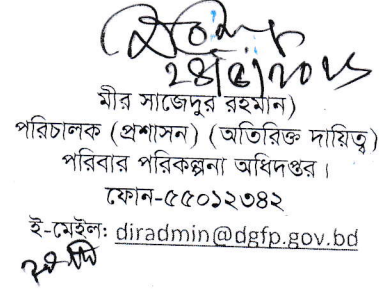 মীর সাজেদুর রহমান)
পরিচালক (প্রশাসন) (অতিরিক্ত দায়িত্ব)
পরিবার পরিকল্পনা অধিদপ্তর।
ফোন-৫৫০১২৩৪২
ই-মেইল: diradmin@dgfp.gov.bd